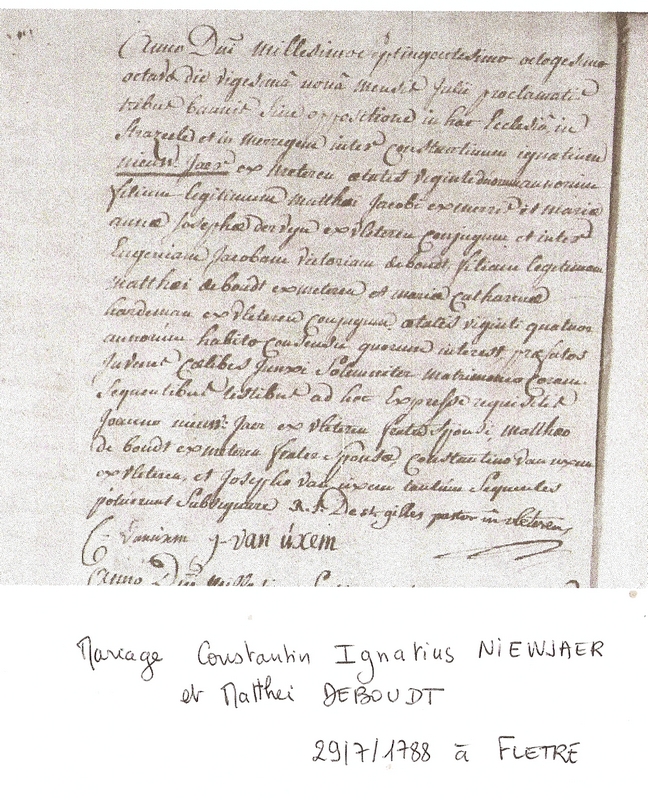 Anno Dni Millesimo septingentesimo octogesimo
octavo die vigesimâ nonâ mensis Julii proclamatis
tribus bannis sine oppositione in hac Ecclesiâ in
Strazeele et in merregem inter Constantinum ignatium
nieuw Jaer ex meteren ætatis viginti annorum
filium legitimum matthæi Jacobi ex et mariæ
annæ Josephæ dervyn ex vleteren conjugum et inter
Eugeniam Jacobam victoriam deboudt filiam legitimam
matthæi de boudt ex meteren et mariæ Catharinæ
hardeman ex vleteren conjugum ætatis viginti quatuor
annorum habito consensu quorum interest, præfatos
Juvenes cælibes Junxi Solemniter matrimonio Coram
Sequentibus testibus ad hoc Expresse requisitis
Joanne nieuw Jaer ex vleteren fratre Sponsi, mattheo
de boudt ex meteren fratre Sponsæ, Constantino van uxem
ex vleteren, et Josepho van uxem tantum Sequentes
potuerunt Subsignare De st. gilles pastor in vleteren
C vanuxem J van úxem
Anno Dni
Mariage Constantin Ignatius NIEWJAER
et Matthei DEBOUDT
29/7/1788 à FLETRE